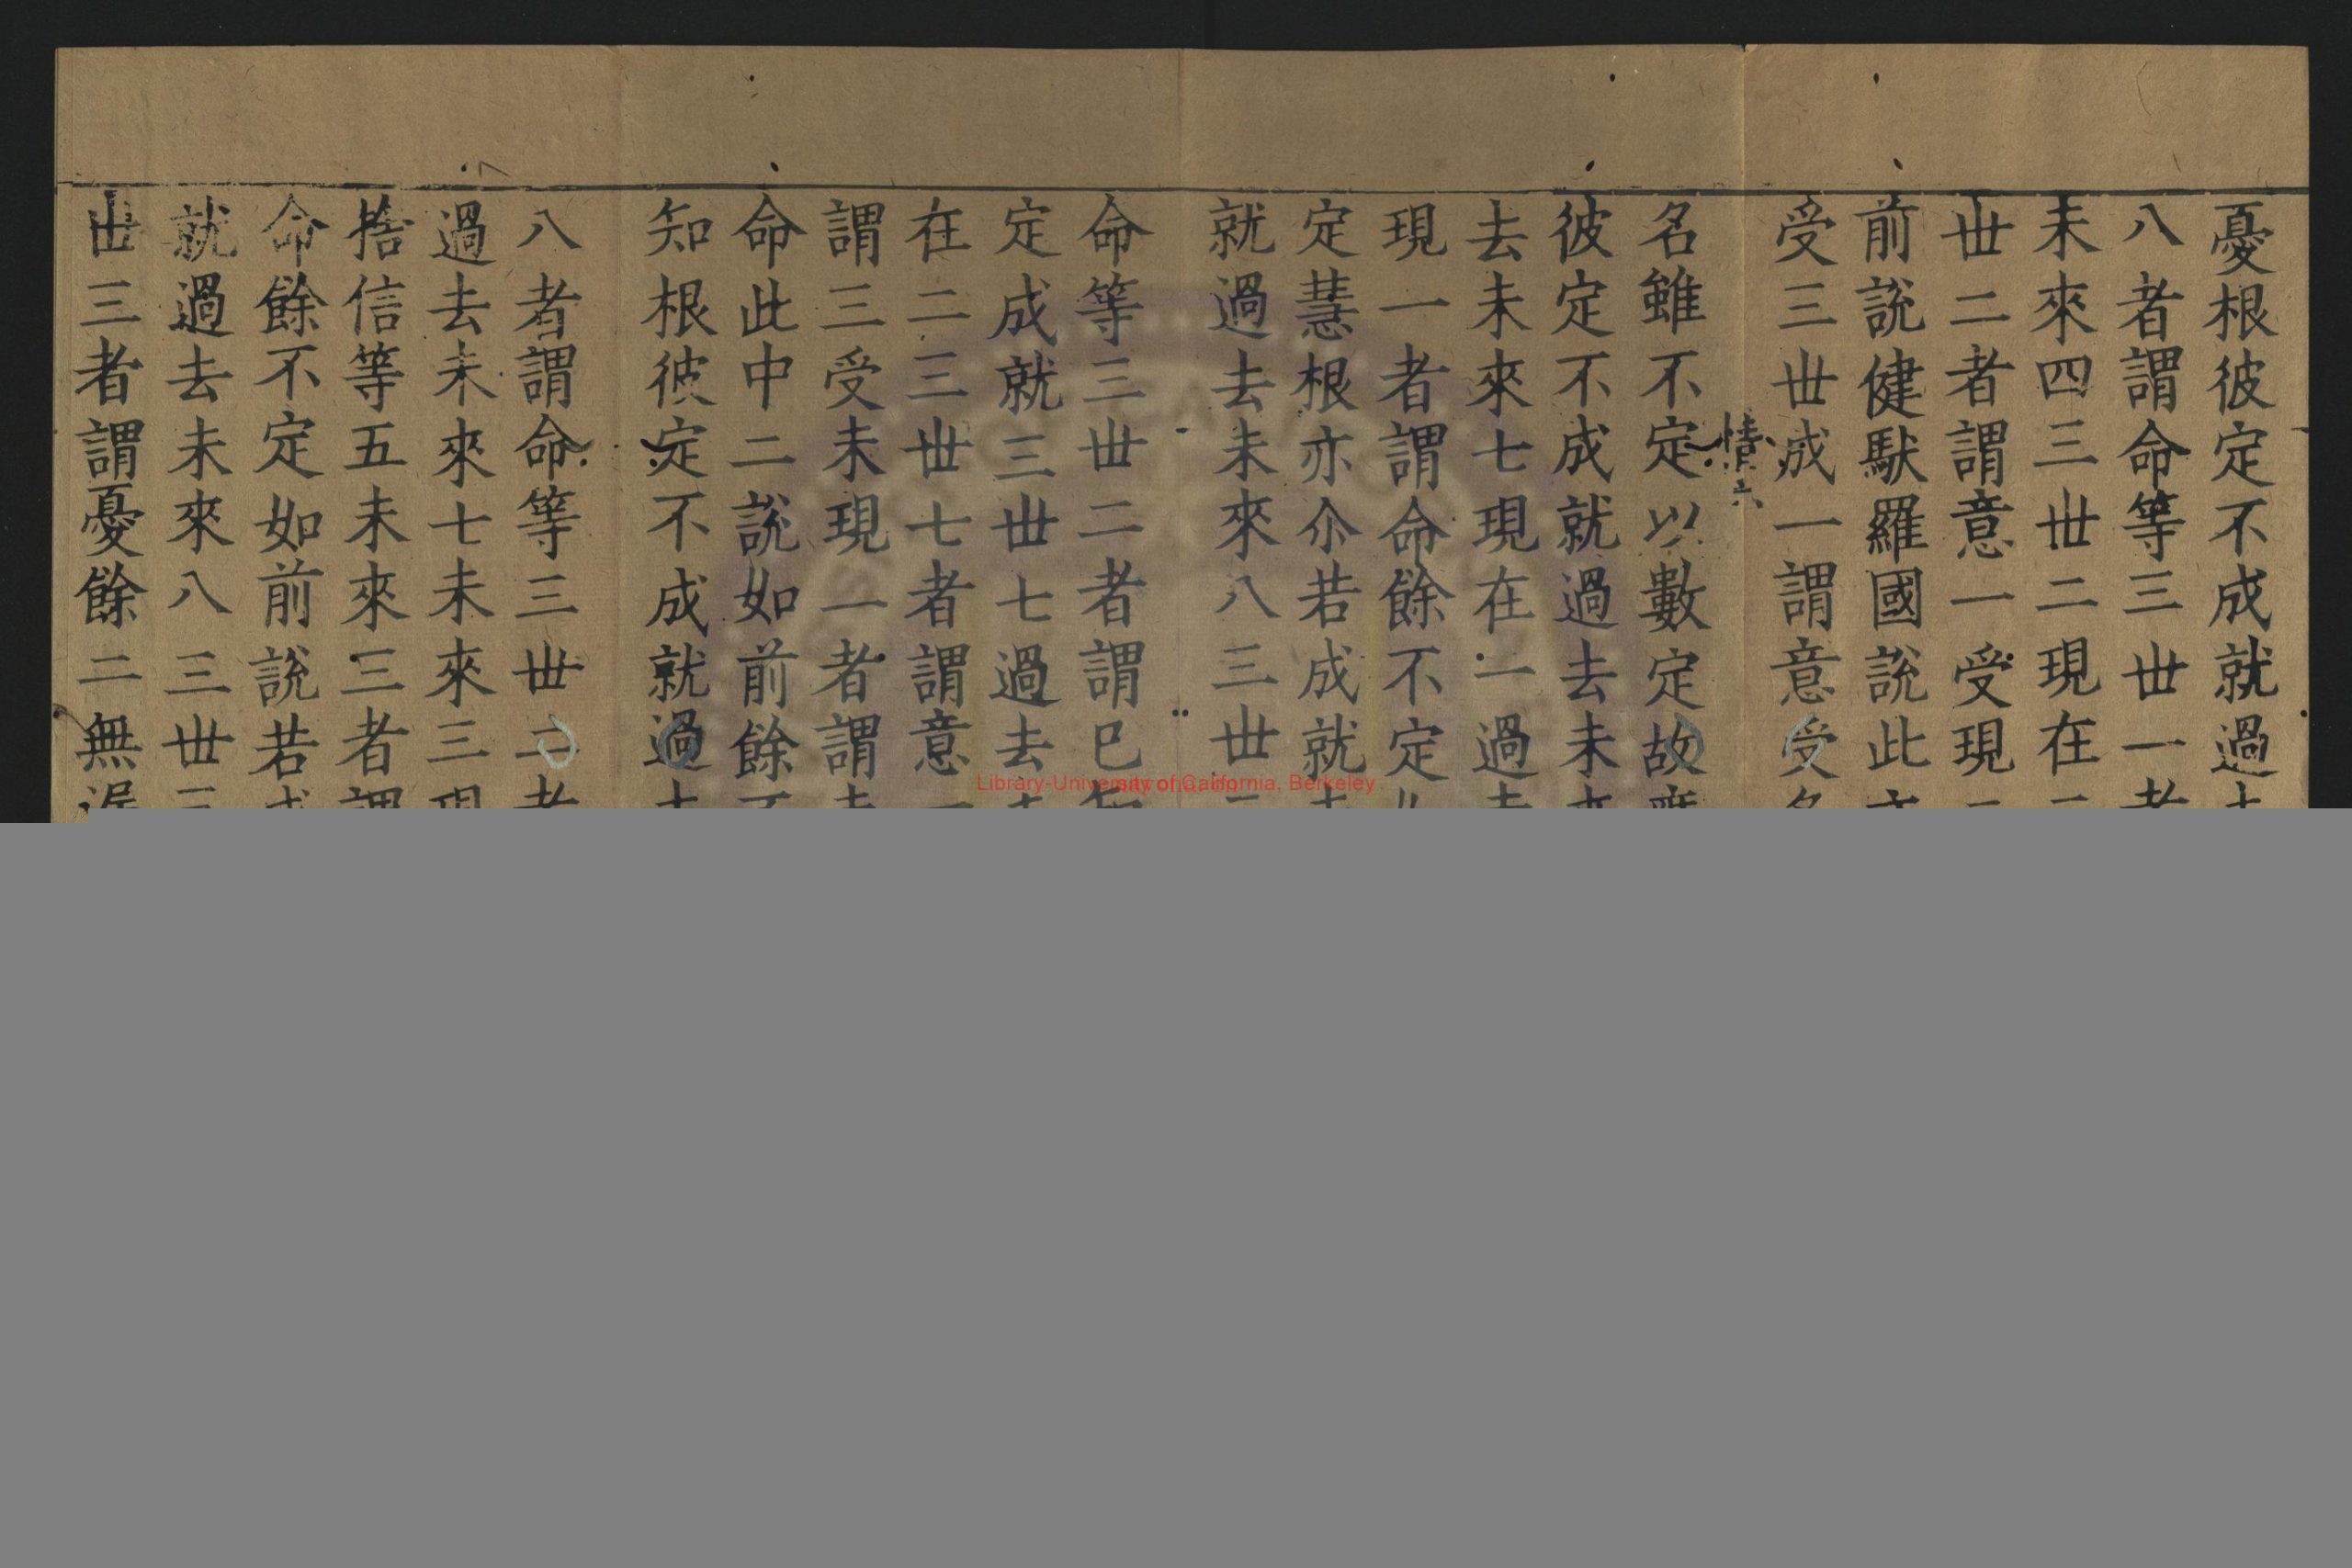 憂根彼定不成就過
八者謂命等三世一
未來四三世二現在
世二者謂意一受現
前說健馱羅國說此
受三世成一謂意受
憒六
名雖不定以數定故
彼定不成就過去未
去未來七現在一過
現一者謂命餘不定
定慧根亦尒若成就
就過去未來八三世
命等三世二者謂已
定成就三世七過去
在二三世七者謂意
謂三受未現一者謂
命此中二說如前餘
知根彼定不成就過
八者謂命等三世二
過去未來七未來三
捨信等五未來三者
命餘不定如前說若
就過去未來八三世
世三者謂憂餘二無
Library-University of California, Berkeley